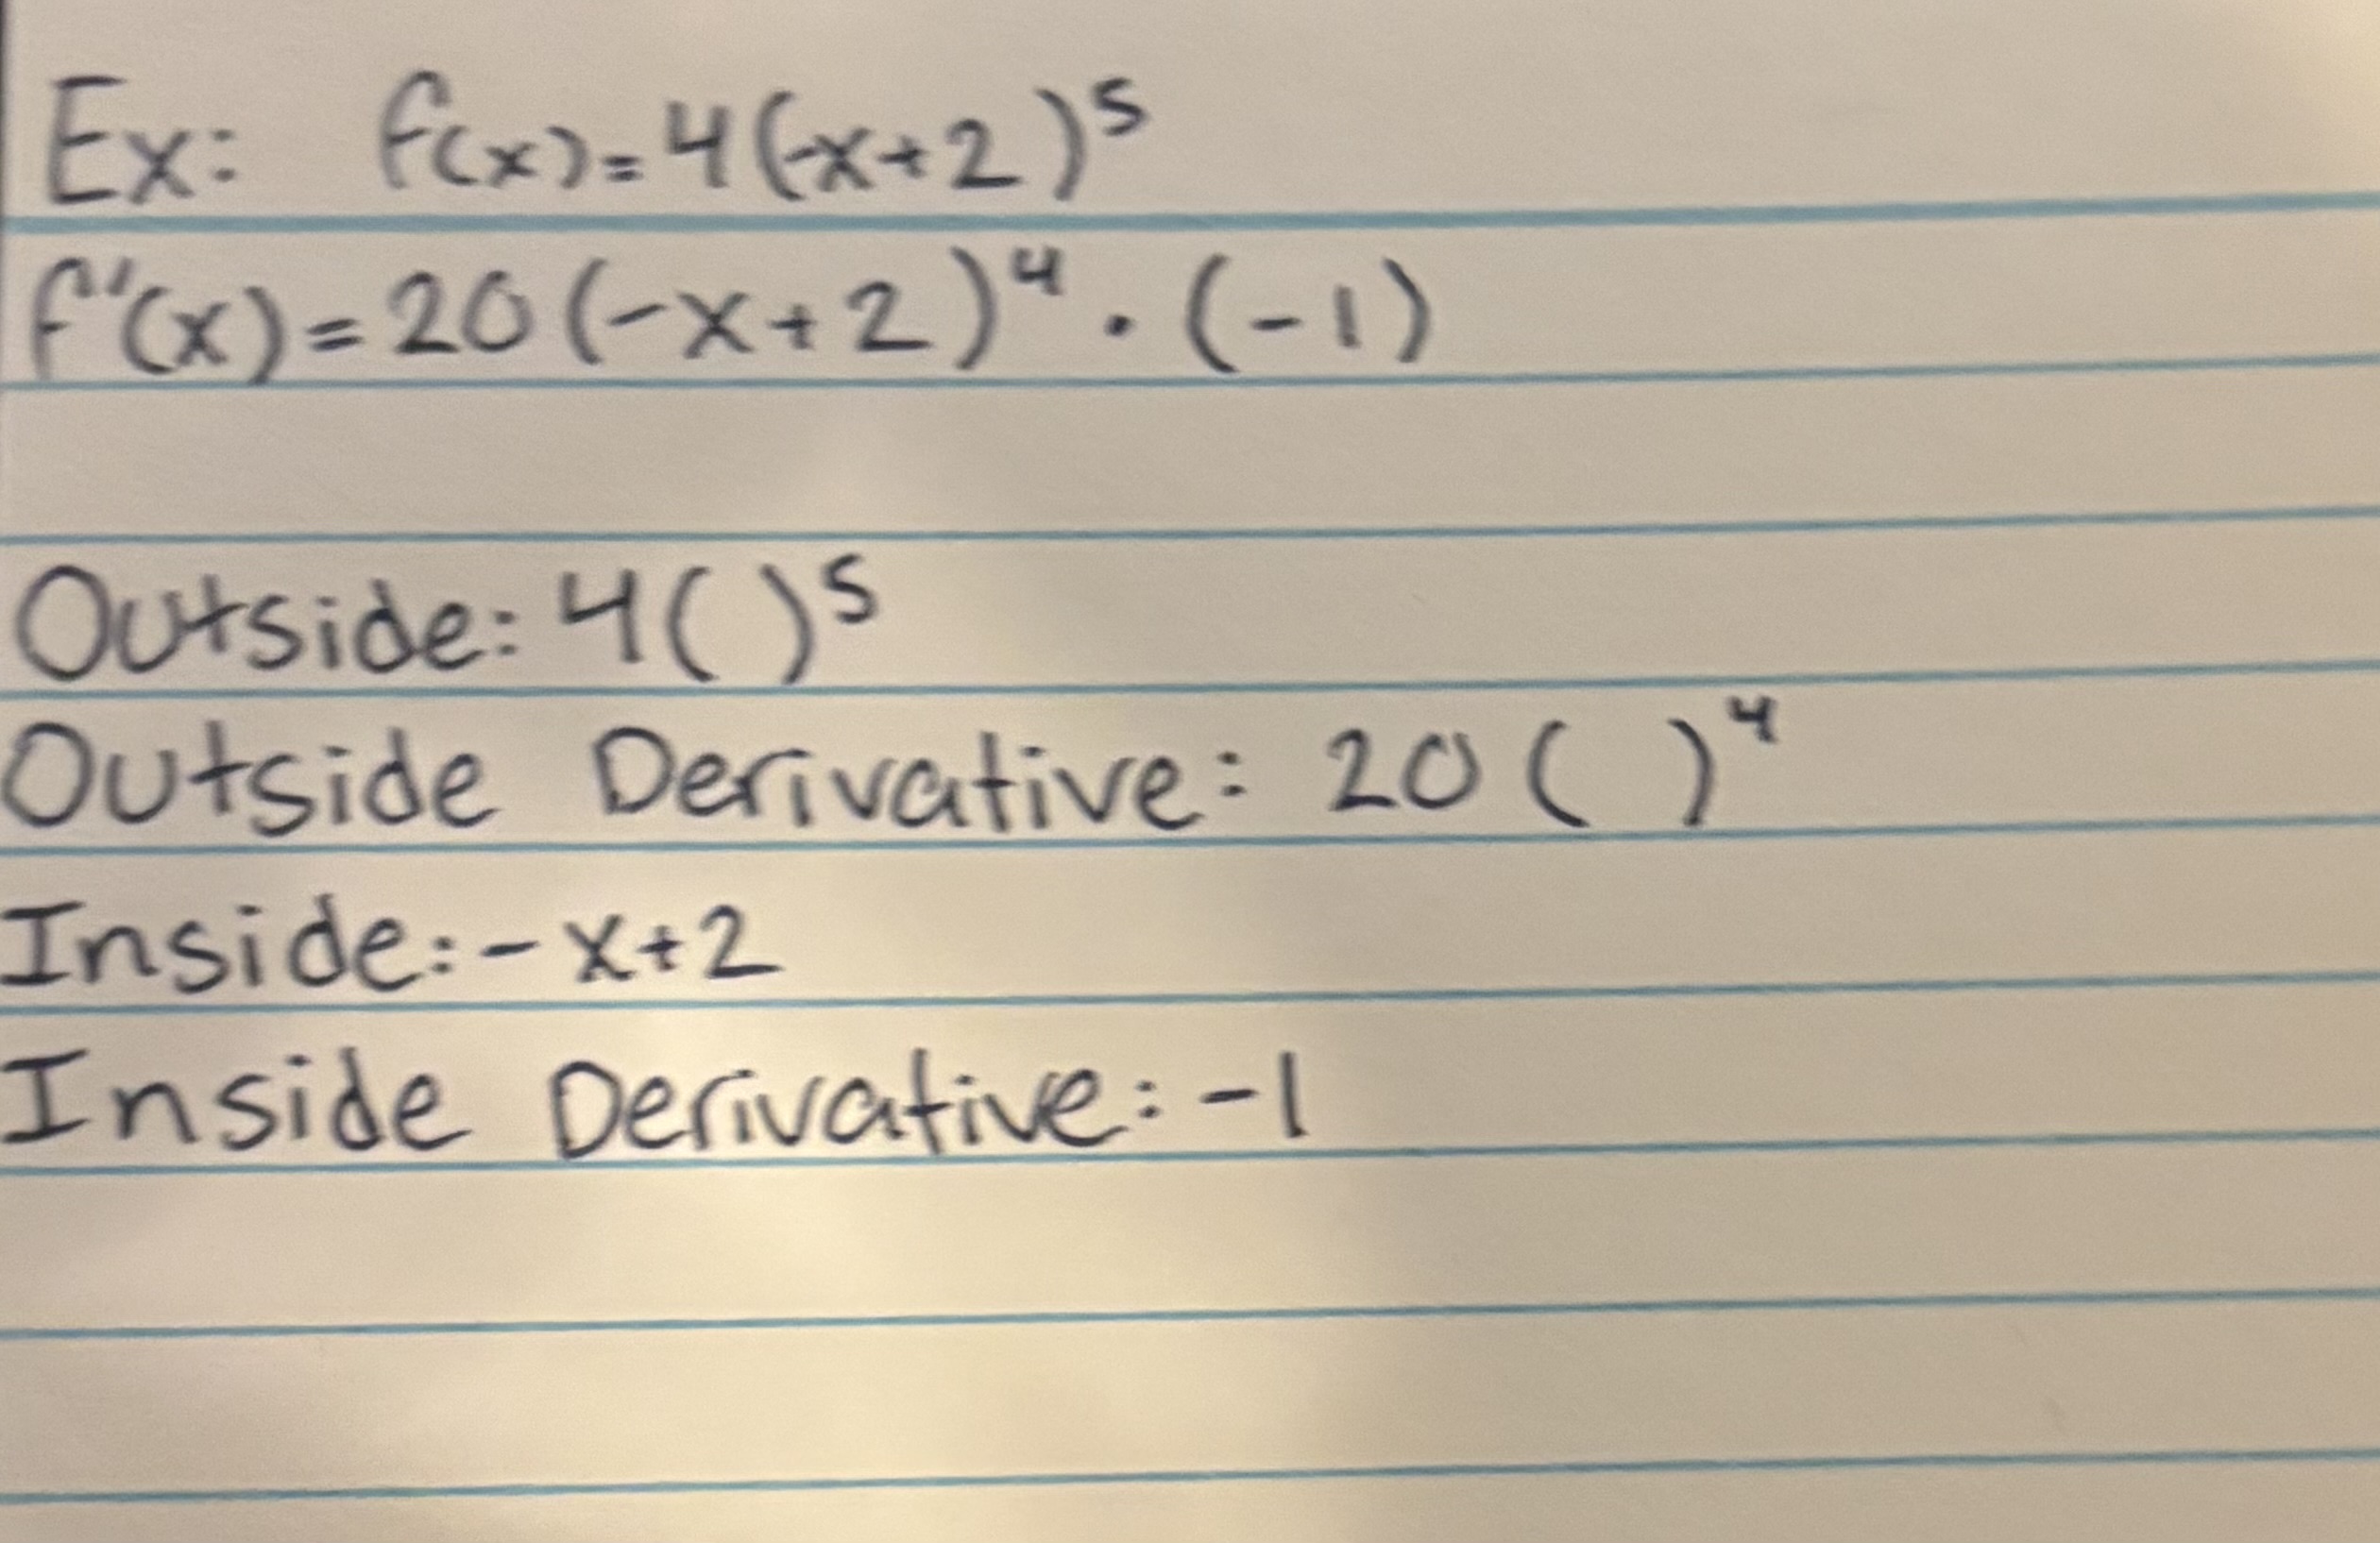 Ex: f(x)=4(-x+2)⁵
f'(x)=20(-x+2)⁴ · (-1)
Outside: 4( )⁵
Outside Derivative: 20( )⁴
Inside: -x+2
Inside Derivative: -1